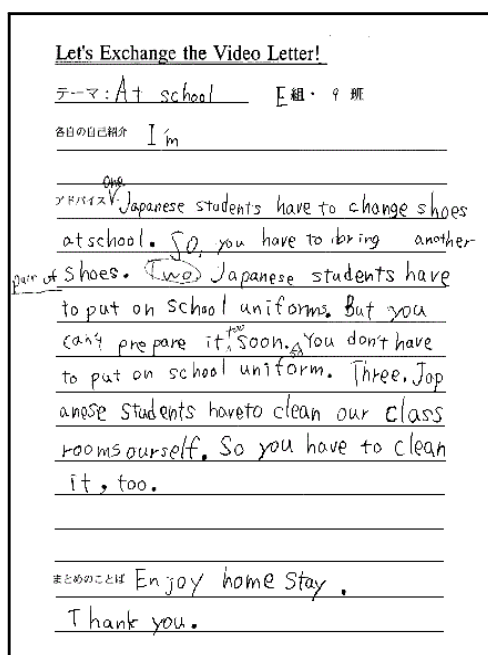 Let's Exchange the Video Letter!
テーマ: At school E組・9班
各自の自己紹介 I'm
One
アドバイス Japanese students have to change shoes
at school. So, you have to bring another
pair of shoes. Two Japanese students have
to put on school uniforms. But you
can't prepare it too soon. So You don't have
to put on school uniform. Three. Jap
anese students have to clean our class
rooms ourself. So you have to clean
it, too.
まとめのことば Enjoy home stay.
Thank you.